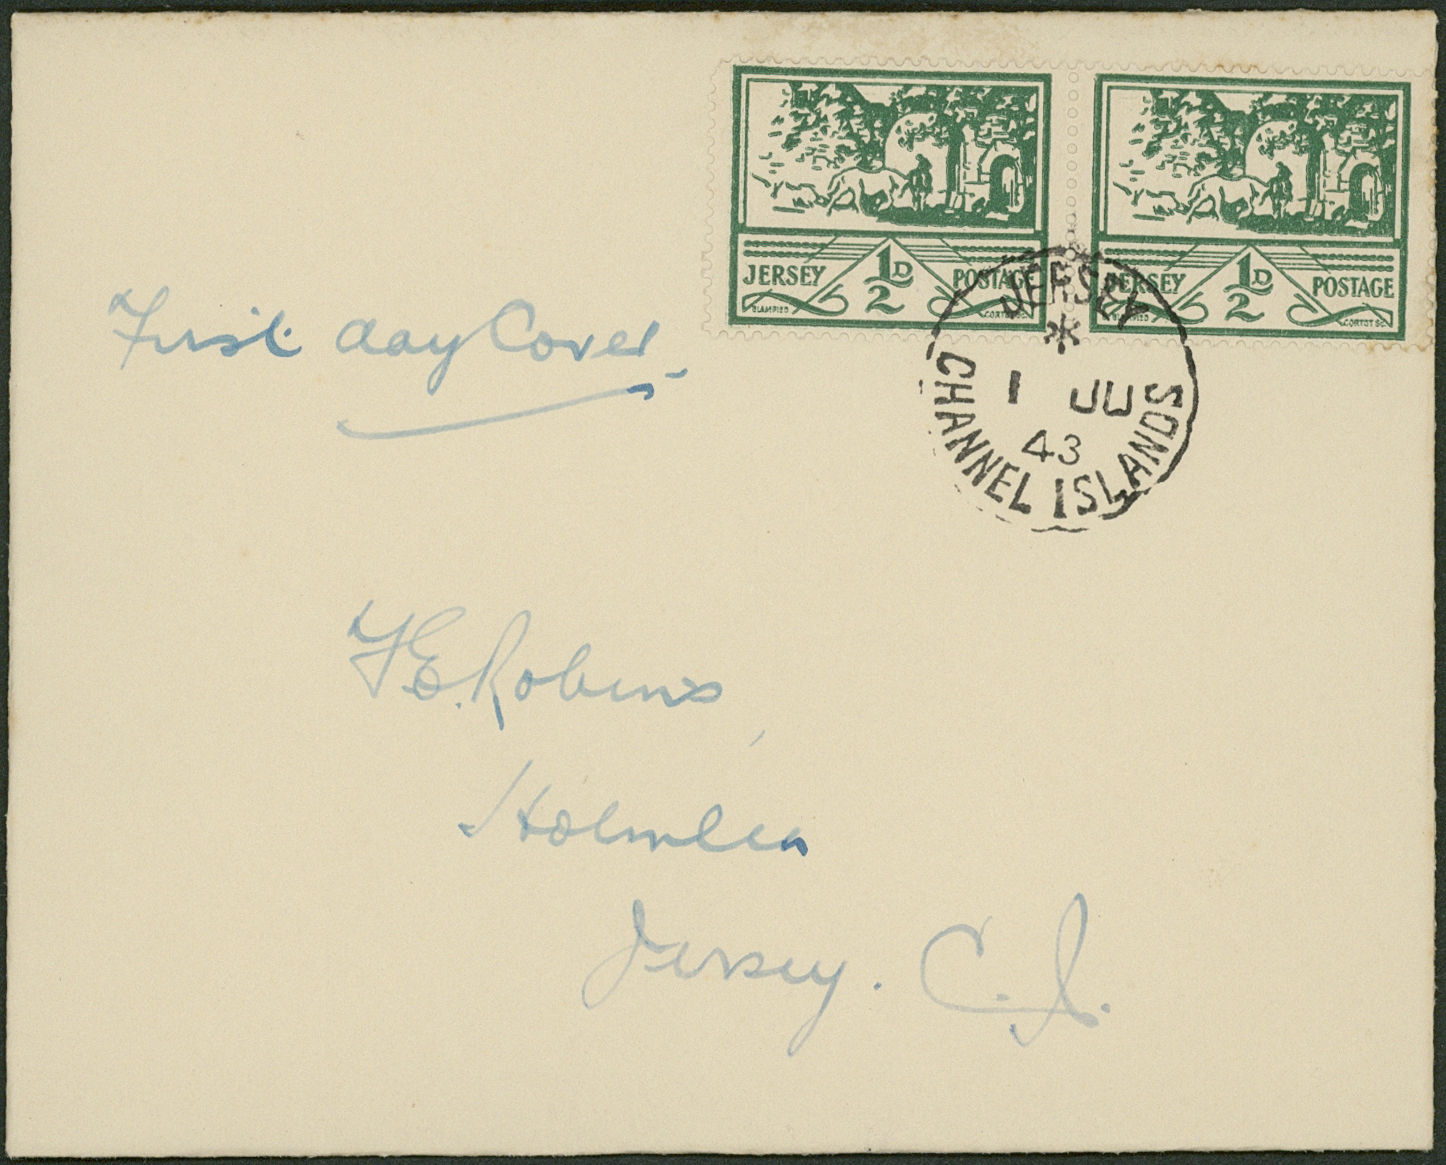 JERSEY 1/2D POSTAGE
BLAMPIED CORTOT SC.
JERSEY 1/2D POSTAGE
BLAMPIED CORTOT SC.
JERSEY
*
1 JU
43
CHANNEL ISLANDS
First day Cover
F E. Robins,
Holmlea
Jersey. C. I.